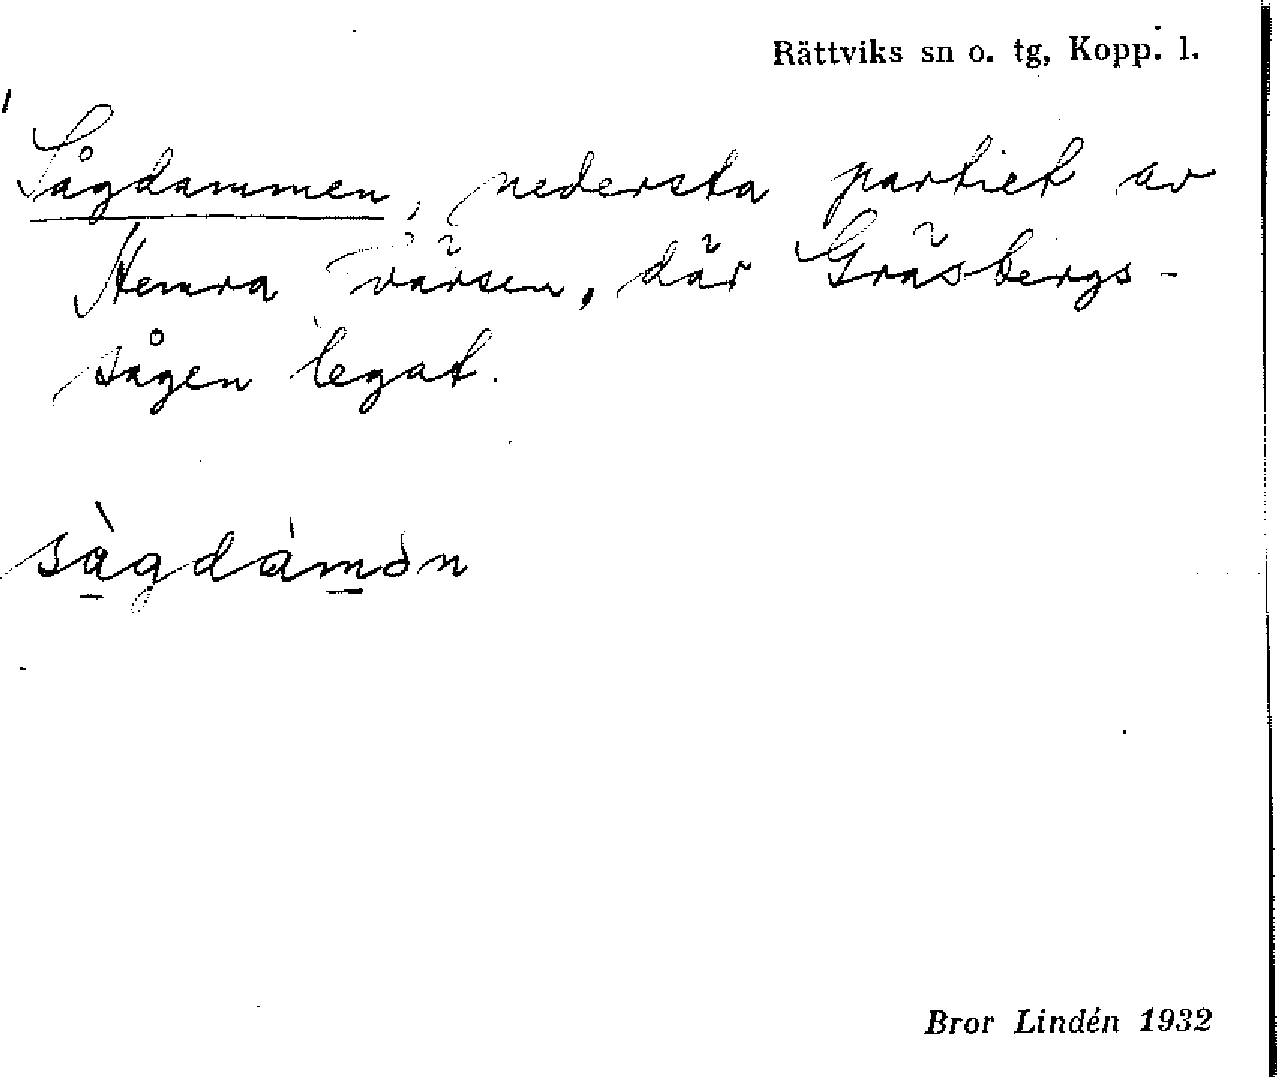 Rättviks sn o. tg, Kopp. l.
Sågdammen, nedersta partiet av
Hemra Tvärsen, där Gräsbergs-
sågen legat.
sàgdámən
Bror Lindén 1932